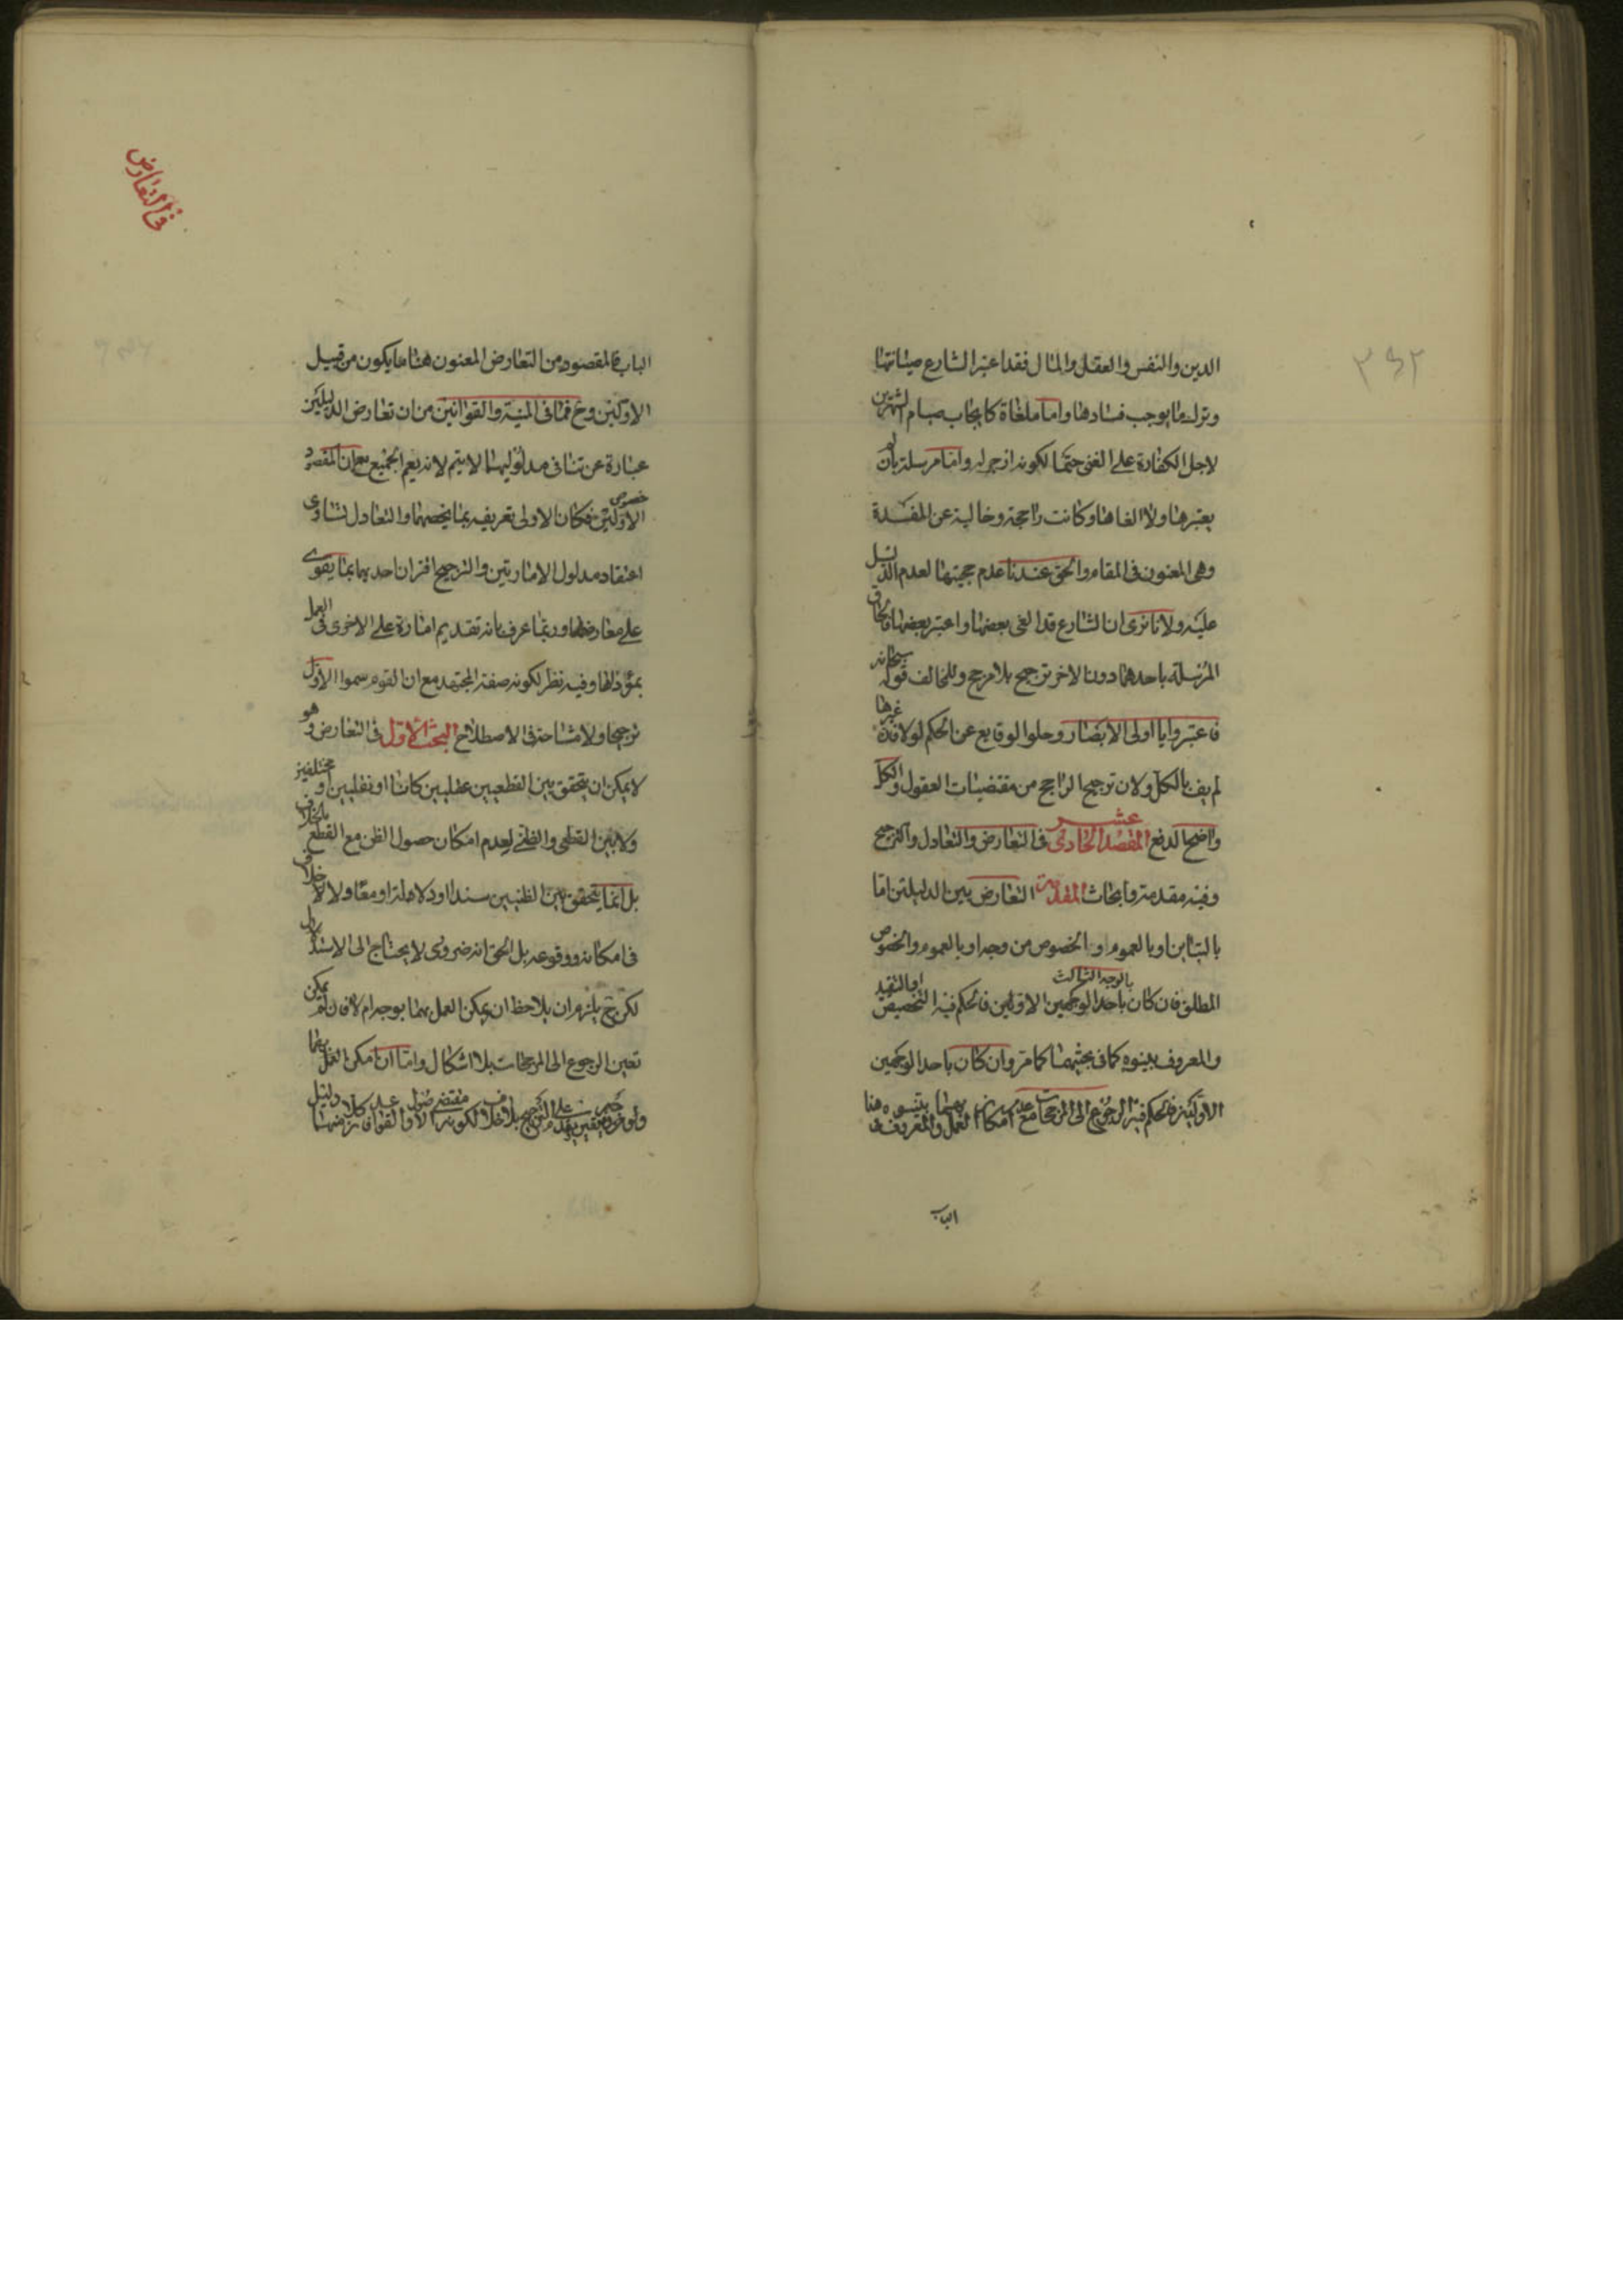 الدين والنفس والعقل والمال فقد اعتبر الشارع صيانتها
وترك ما يوجب فسادها واما ملغاة كايجاب صيام الشهرين
لاجل الكفارة على الغنى حتما لكونه ازجر له واما مرسلة بان لم
يعتبرها ولا الغاها وكانت راجحة وخالية عن المفسدة
وهى المعنون فى المقام والحق عندنا عدم حجيتها لعدم الدليل
عليه ولانا نرى ان الشارع قد الغى بعضها واعتبر بعضها فالحاق
المرسلة باحدهما دون الاخر ترجيح بلا مرجح وللمخالف قوله سبحانه
فاعتبروا يا اولى الابصار وخلوا الوقايع عن الحكم لولا غيرها
لم يف بالكل ولان ترجيح الراجح من مقتضيات العقول والكل
واضح الدفع المقصد الحادى عشر فى التعارض والتعادل والترجيح
وفيه مقدمة وابحاث المقدمة التعارض بين الدليلين اما
بالتباين او بالعموم والخصوص من وجه او بالعموم والخصوص
المطلق فان كان باحد الوجهين الاولين فالحكم فيه التخصيص او التقييد
بالوجه الثالث
والمعروف بينوه كما فى بحثيهما كما مر وان كان باحد الوجهين
الاولين فالحكم فيه الرجوع الى المرجحات مع عدم امكان العمل بهما والمعروف بينوه هنا
الباب
فى التعارض
الباب فالمقصود من التعارض المعنون هنا ما يكون من قبيل
الاولين وح فما فى المنية والقوانين من ان تعارض الدليلين
عبارة عن تنافى مدلوليهما لا يتم لانه يعم الجميع مع ان المقصود
خصوص الاولين فكان الاولى تعريفه بما يخصهما والتعادل تساوى
اعتقاد مدلول الامارتين والترجيح اقتران احديهما بما يقوى
على معارضها وربما عرف بانه تقديم امارة على الاخرى فى العمل
بمؤداها وفيه نظر لكونه صفة المجتهد مع ان القوم سموا الاول
ترجيحا ولا مشاحة فى الاصطلاح البحث الاول فى التعارض وهو
لا يمكن ان يتحقق بين القطعيين عقليين كانا او نقليين او مختلفين
ولا بين القطعى والظنى لعدم امكان حصول الظن مع القطع بالخلاف
بل انما يتحقق بين الظنيين سندا او دلالة او معا ولا خلاف
فى امكانه ووقوعه بل الحق انه ضرورى لا يحتاج الى الاستدلال
لكن ح يلزم ان يلاحظ ان يمكن العمل بهما بوجه ام لا فان لم يمكن
تعين الرجوع الى المرجحات بلا اشكال واما ان امكن العمل بهما
ولو من وجه على الترجيح بلا خلاف لكونه مقتضى